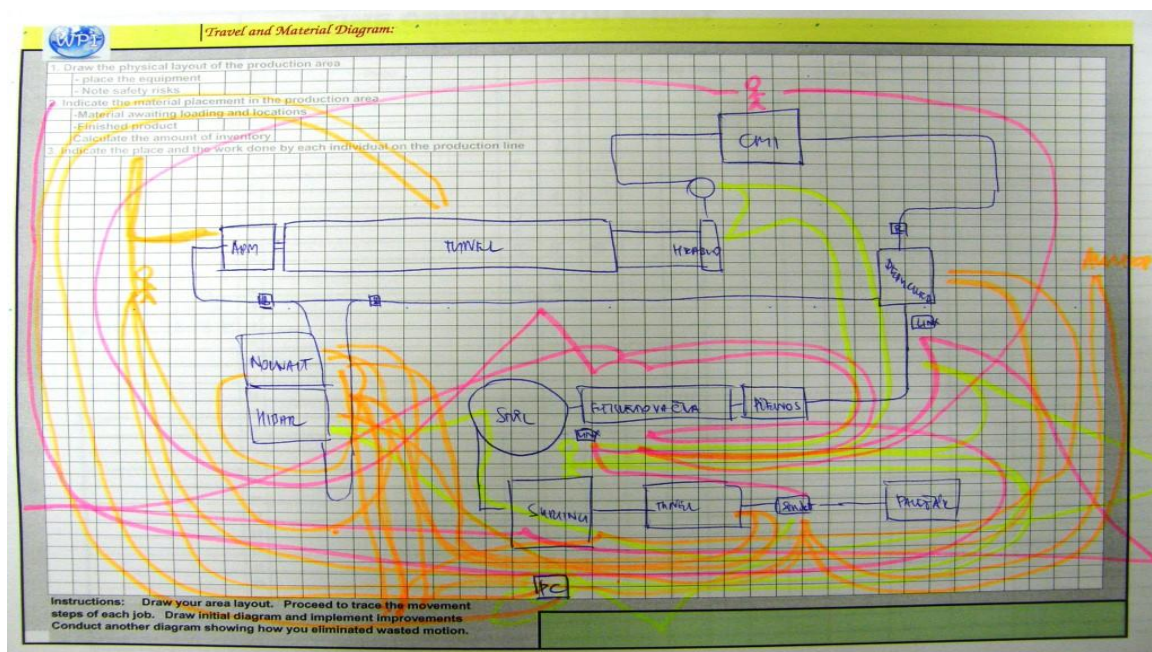 WPI
Travel and Material Diagram:
1. Draw the physical layout of the production area
- place the equipment
- Note safety risks
2. Indicate the material placement in the production area
-Material awaiting loading and locations
-Finished product
Calculate the amount of inventory
3. Indicate the place and the work done by each individual on the production line
CMI
APM
TUNEL
LINX
NOUWAIT
HIDAR
SMRL
LINX
TUNEL
PC
Instructions: Draw your area layout. Proceed to trace the movement
steps of each job. Draw initial diagram and implement improvements
Conduct another diagram showing how you eliminated wasted motion.